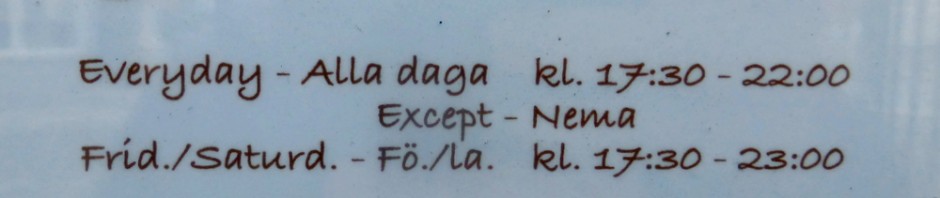 Everyday - Alla daga kl. 17:30 - 22:00
Except - Nema
Frid./Saturd. - Fö./la. kl. 17:30 - 23:00